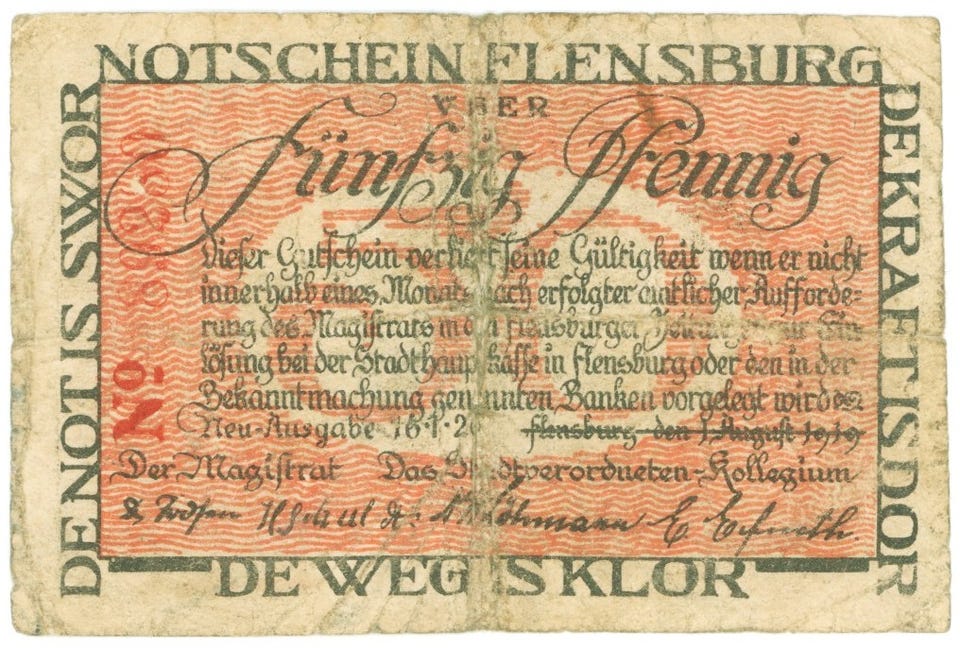 NOTSCHEIN FLENSBURG
VBER
Fünfzig Pfennig
Dieser Gutschein verliert seine Gültigkeit wenn er nicht
innerhalb eines Monats nach erfolgter amtlicher Aufforde-
rung des Magistrats in den Flensburger zur Ein
lösung bei der Stadthauptkasse in Flensburg oder den in der
Bekanntmachung genannten Banken vorgelegt wird
Neu-Ausgabe 16·1·20 Flensburg den 1 August 1919
Der Magistrat Das Stadtverordneten-Kollegium
Löhmann
DE NOT IS SWOR
DE KRAFT IS DOR
DE WEG IS KLOR
No